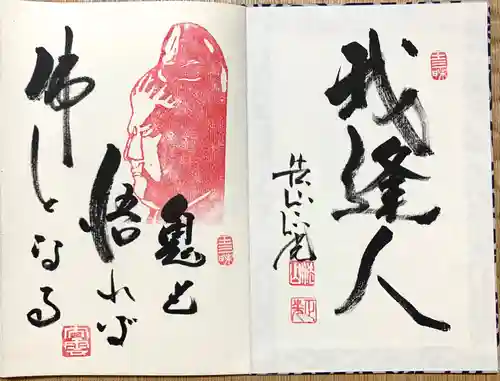 我逢人
鬼も
悟れば
佛となる